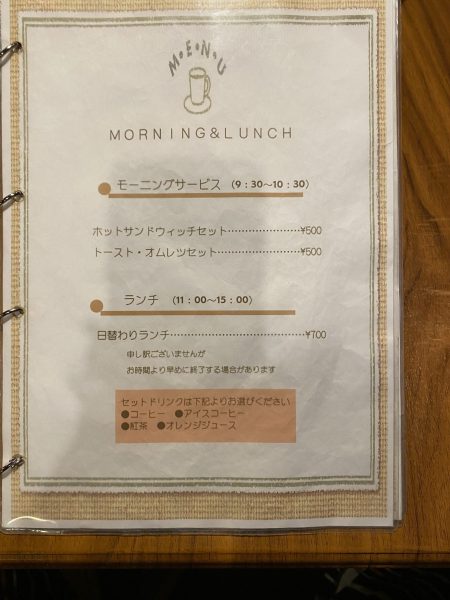 M・E・N・U
MORNING&LUNCH
●モーニングサービス (9:30〜10:30)
ホットサンドウィッチセット……………………¥500
トースト・オムレツセット……………………¥500
●ランチ (11:00〜15:00)
日替わりランチ……………………………………¥700
申し訳ございませんが
お時間より早めに終了する場合があります
セットドリンクは下記よりお選びください
●コーヒー ●アイスコーヒー
●紅茶 ●オレンジジュース